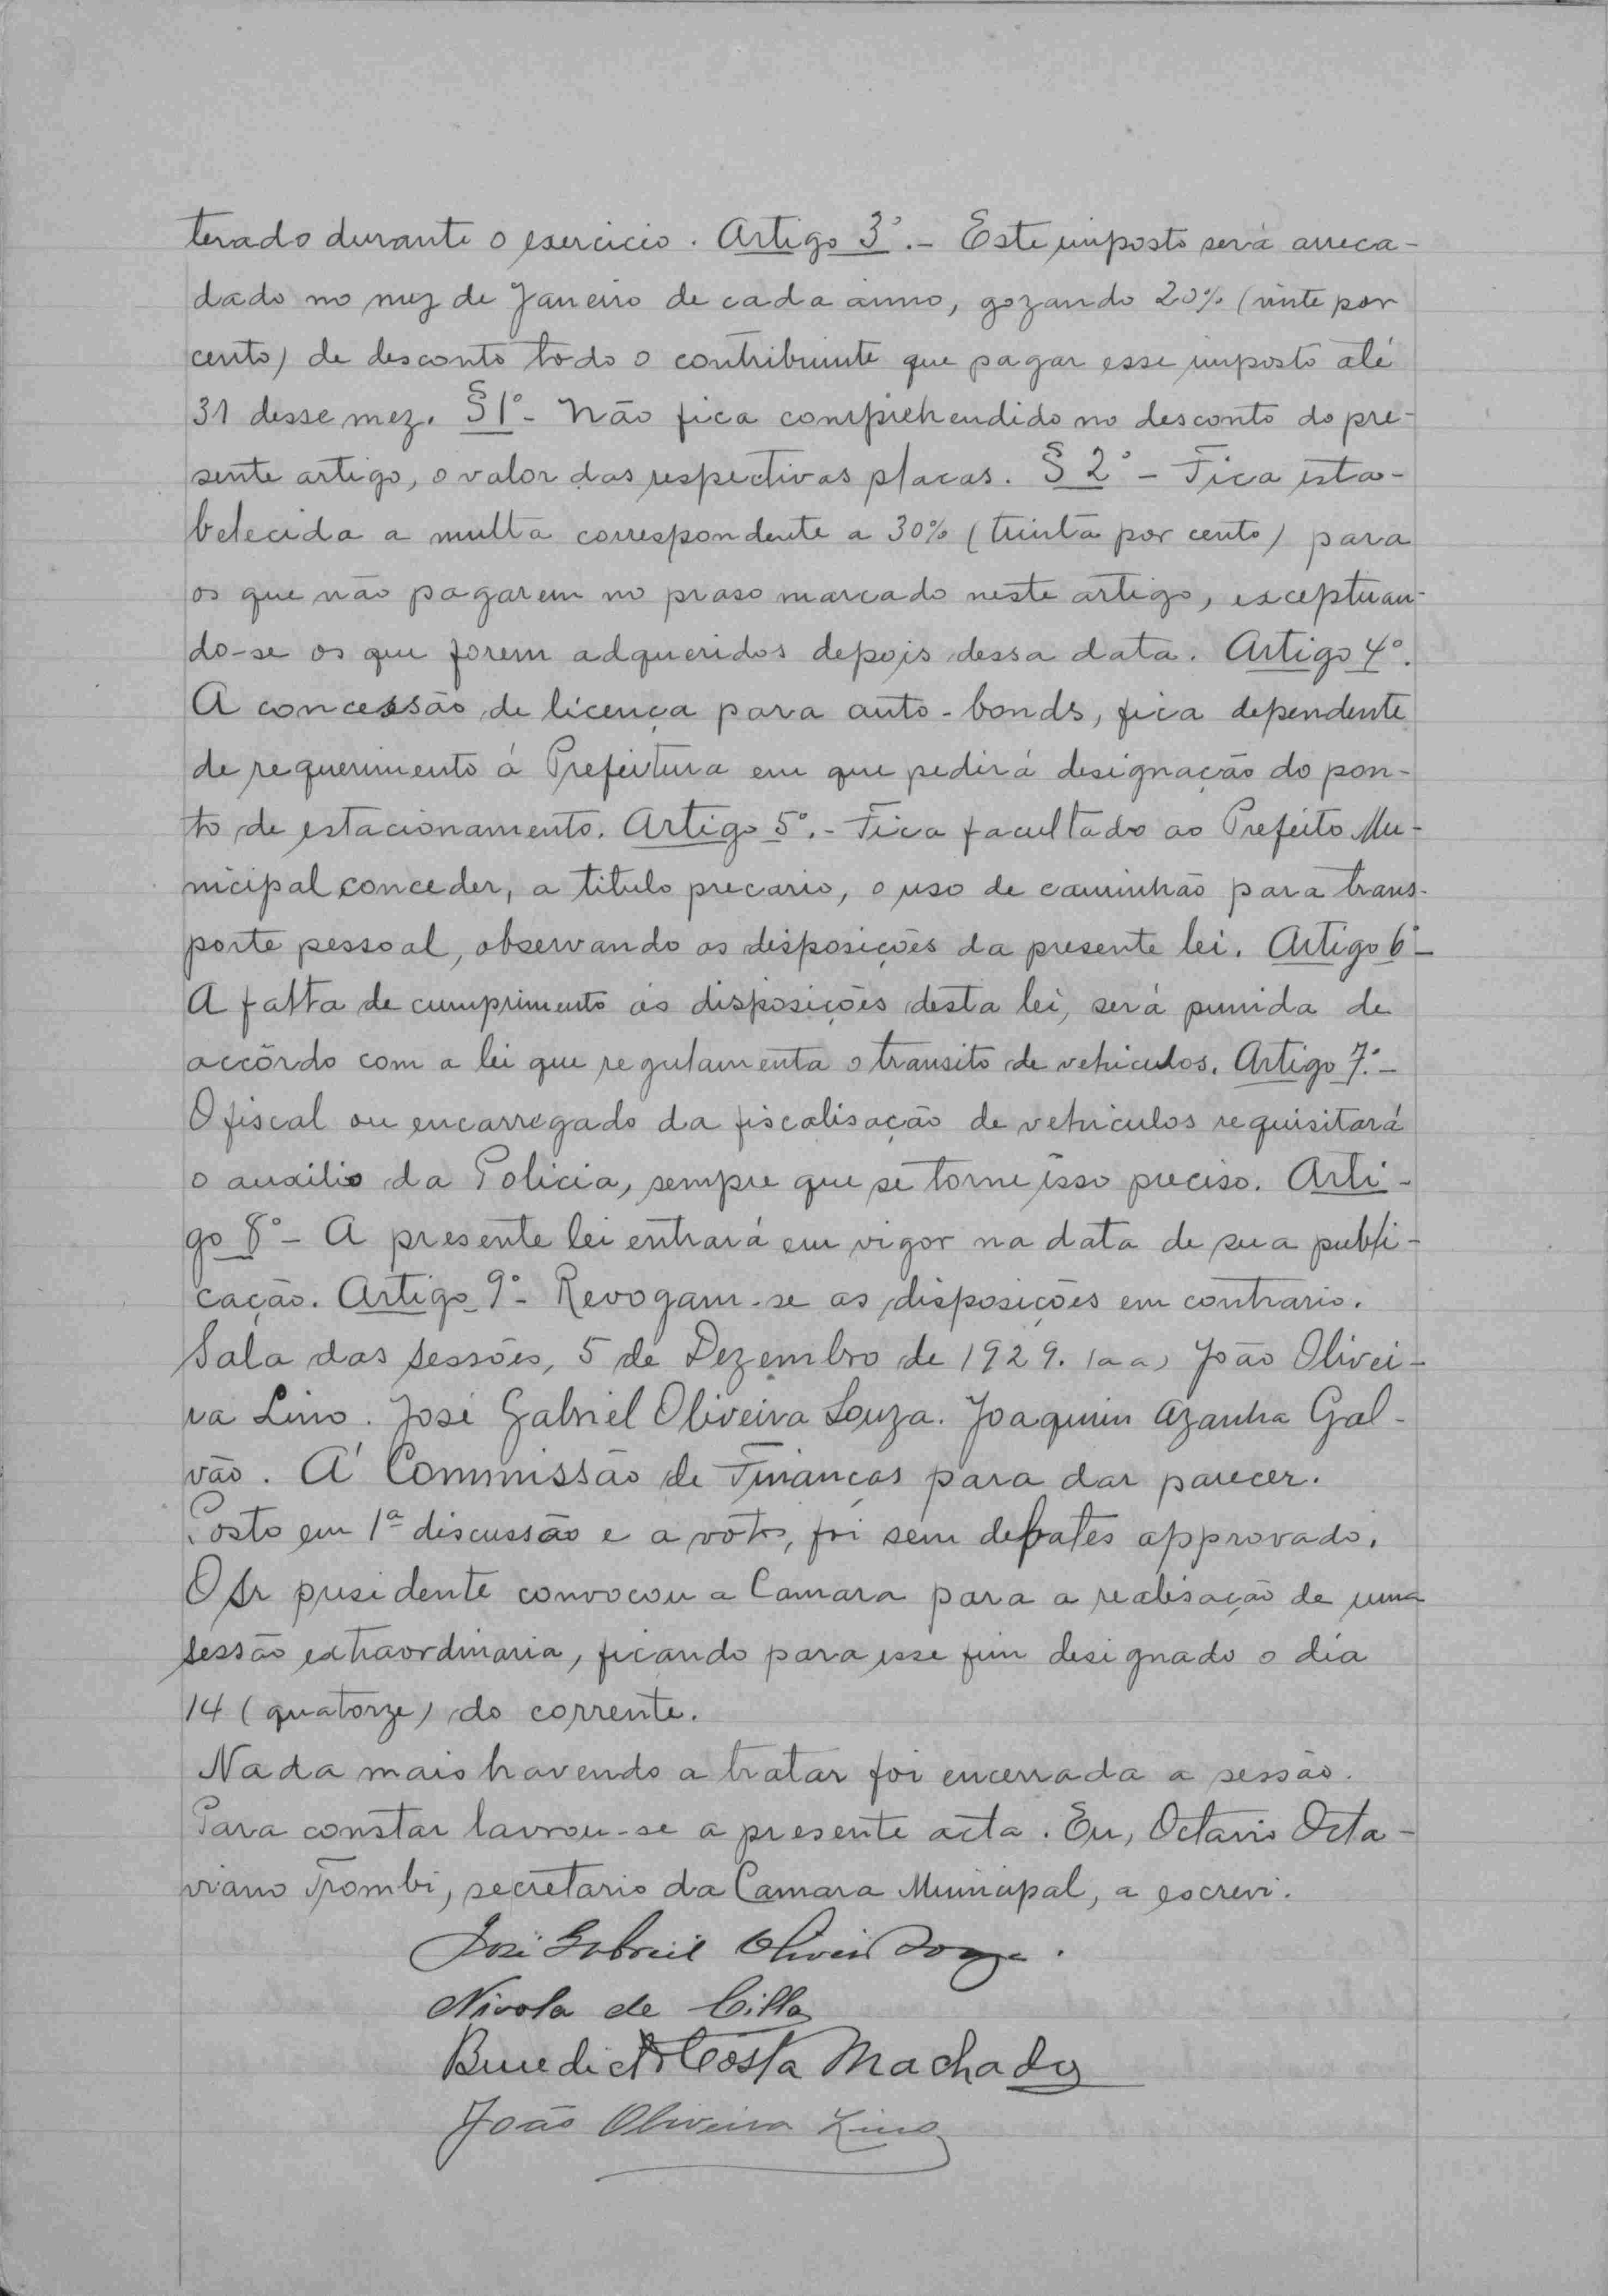 terado durante o exercicio. Artigo 3º.- Este imposto será arreca-
dado no mez de Janeiro de cada anno, gozando 20% (vinte por
cento) de desconto todo o contribuinte que pagar esse imposto até
31 desse mez. §1º- Não fica comprehendido no desconto do pre-
sente artigo, o valor das respectivas placas. § 2º - Fica esta-
belecida a multa correspondente a 30% (trinta por cento) para
os que não pagarem no praso marcado neste artigo, exceptuan-
do-se os que forem adqueridos depois dessa data. Artigo 4º.
A concessão de licença para auto-bonds, fica dependente
de requerimento á Prefeitura em que pedirá designação do pon-
to de estacionamento. Artigo 5º.- Fica facultado ao Prefeito Mu-
nicipal conceder, a titulo precario, o uso de caminhão para trans-
porte pessoal, observando as disposições da presente lei. Artigo 6º-
A falta de cumprimento ás disposições desta lei, será punida de
accôrdo com a lei que regulamenta o transito de vehiculos. Artigo 7.º-
O fiscal ou encarregado da fiscalisação de vehiculos requisitará
o auxilio da Policia, sempre que se torne isso preciso. Arti-
go 8º- A presente lei entrará em vigor na data de sua publi-
cação. Artigo 9º- Revogam-se as disposições em contrario.
Sala das sessões, 5 de Dezembro de 1929. (a a) João Olivei-
ra Lino. José Gabriel Oliveira Souza. Joaquim Azanha Gal-
vão. Á Commissão de Finanças para dar parecer.
Posto em 1ª discussão e a votos, foi sem debates approvado.
O Sr presidente convocou a Camara para a realisação de uma
sessão extraordinaria, ficando para esse fim designado o dia
14 (quatorze) do corrente.
Nada mais havendo a tratar foi encerrada a sessão.
Para constar lavrou-se a presente acta. Eu, Octavio Octa-
viano Trombi, secretario da Camara Municipal, a escrevi.
José Gabriel Oliveira Souza.
Nicola de Cillo
Benedicto Costa Machado
João Oliveira Lino